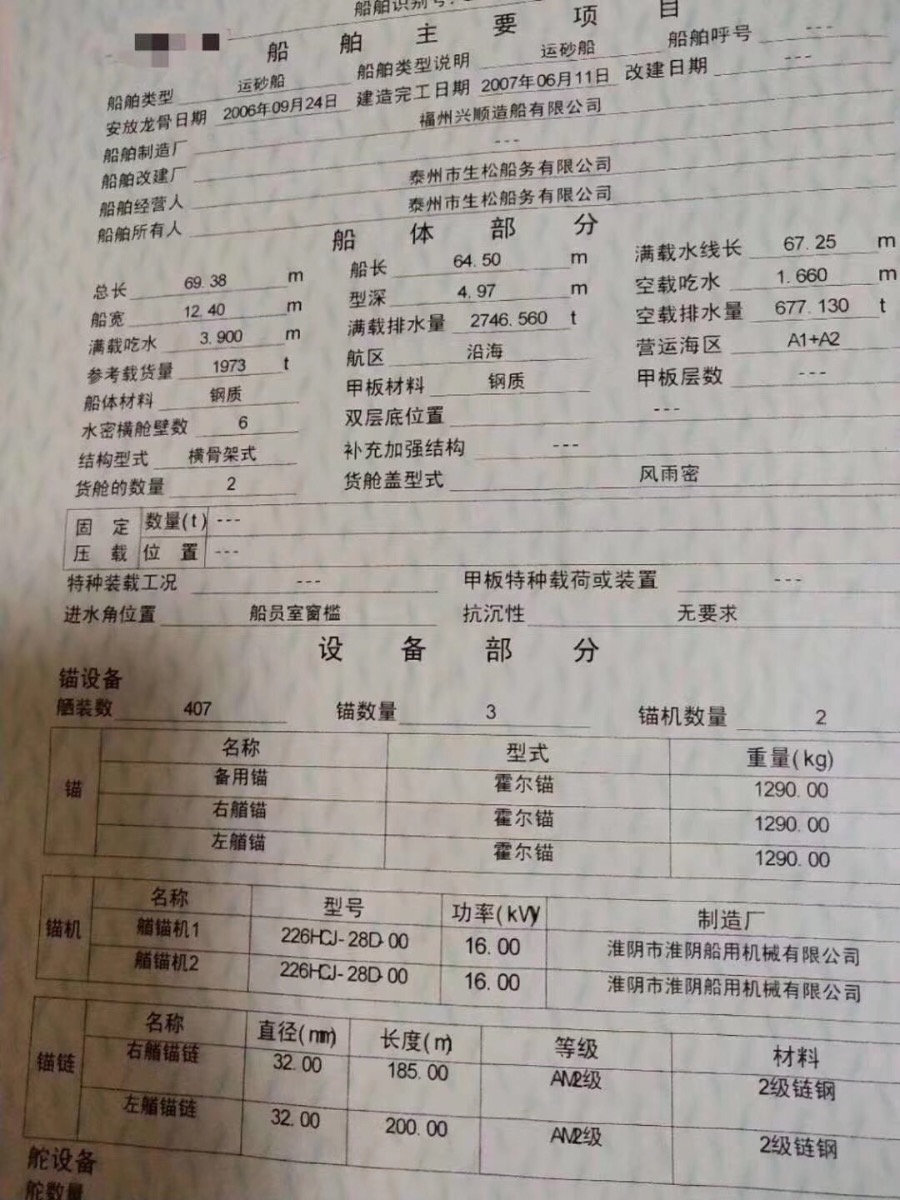 船舶识别号:
船舶主要项目
船舶类型 运砂船 船舶类型说明 运砂船 船舶呼号 ---
安放龙骨日期 2006年09月24日 建造完工日期 2007年06月11日 改建日期 ---
船舶制造厂 福州兴顺造船有限公司
船舶改建厂 ---
船舶经营人 泰州市生松船务有限公司
船舶所有人 泰州市生松船务有限公司
船体部分
总长 69.38 m 船长 64.50 m 满载水线长 67.25 m
船宽 12.40 m 型深 4.97 m 空载吃水 1.660 m
满载吃水 3.900 m 满载排水量 2746.560 t 空载排水量 677.130 t
参考载货量 1973 t 航区 沿海 营运海区 A1+A2
船体材料 钢质 甲板材料 钢质 甲板层数 ---
水密横舱壁数 6 双层底位置 ---
结构型式 横骨架式 补充加强结构 ---
货舱的数量 2 货舱盖型式 风雨密
固定 数量(t) ---
压载 位置 ---
特种装载工况 --- 甲板特种载荷或装置 ---
进水角位置 船员室窗槛 抗沉性 无要求
设备部分
锚设备
舾装数 407 锚数量 3 锚机数量 2
名称 型式 重量(kg)
锚 备用锚 霍尔锚 1290.00
右艏锚 霍尔锚 1290.00
左艏锚 霍尔锚 1290.00
名称 型号 功率(kW) 制造厂
锚机 艏锚机1 226HCJ-28D-00 16.00 淮阴市淮阴船用机械有限公司
艏锚机2 226HCJ-28D-00 16.00 淮阴市淮阴船用机械有限公司
名称 直径(mm) 长度(m) 等级 材料
锚链 右艏锚链 32.00 185.00 AM2级 2级链钢
左艏锚链 32.00 200.00 AM2级 2级链钢
舵设备
舵数量